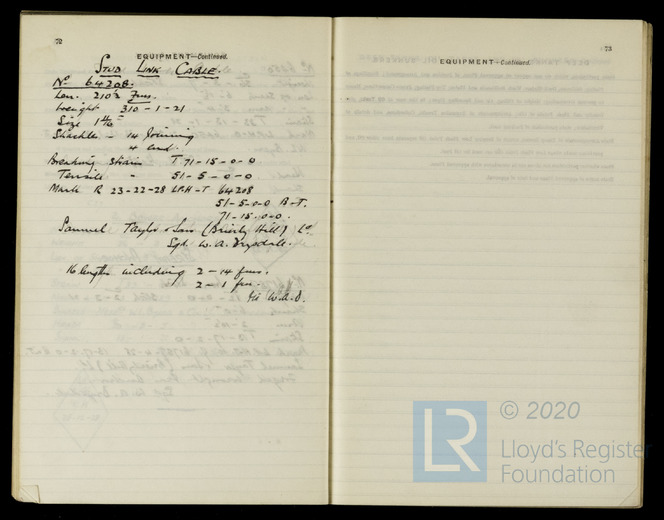 72
EQUIPMENT—Continued.
STUD LINK CABLE.
No 64208.
Len. 210½ Fms.
Weight 310-1-21
Size
Shackle - 14 Joining
4 end.
Breaking Strain T 71-15-0-0
Tensile " 51-5-0-0
Mark R 23-22-28 LP.H-T 64208
51-5-0-0 B-T.
71-15-0-0.
Samuel Taylor & Son (Brierly Hill) Ld
Sgd. W.A. Drysdale.
16 lengths including 2-14 fms.
2-1 fm.
W.A.D.
73
EQUIPMENT—Continued.
LR
© 2020
Lloyd's Register
Foundation